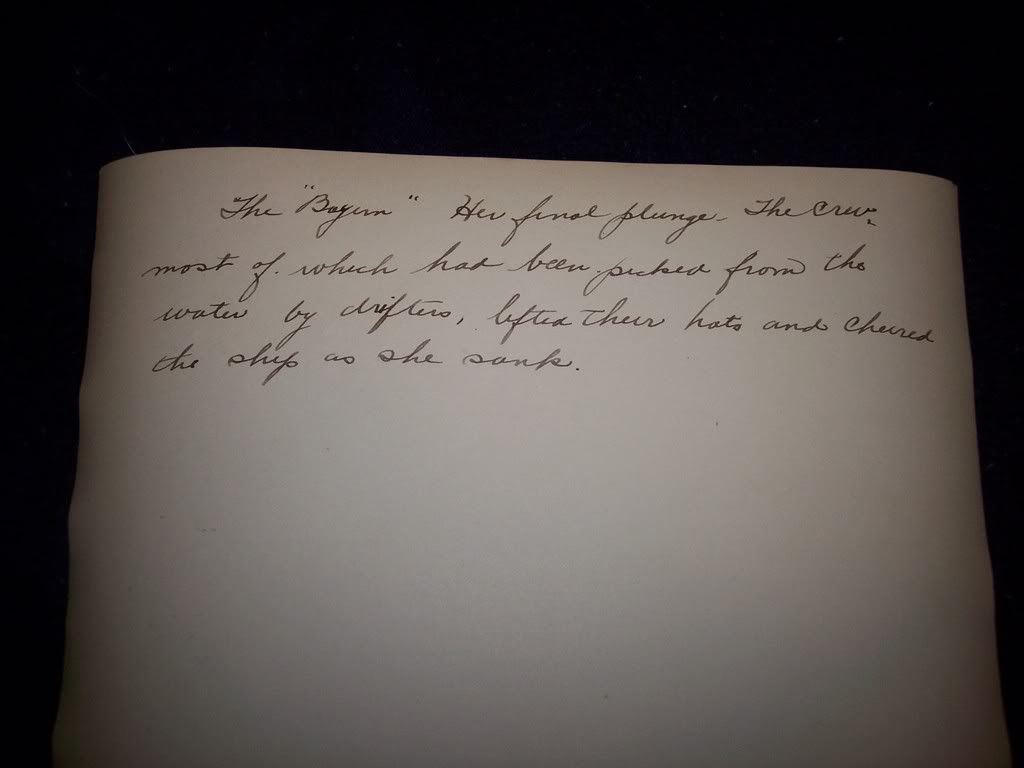 The "Bayern" Her final plunge. The crew,
most of which had been picked from the
water by drifters, lifted their hats and cheered
the ship as she sank.